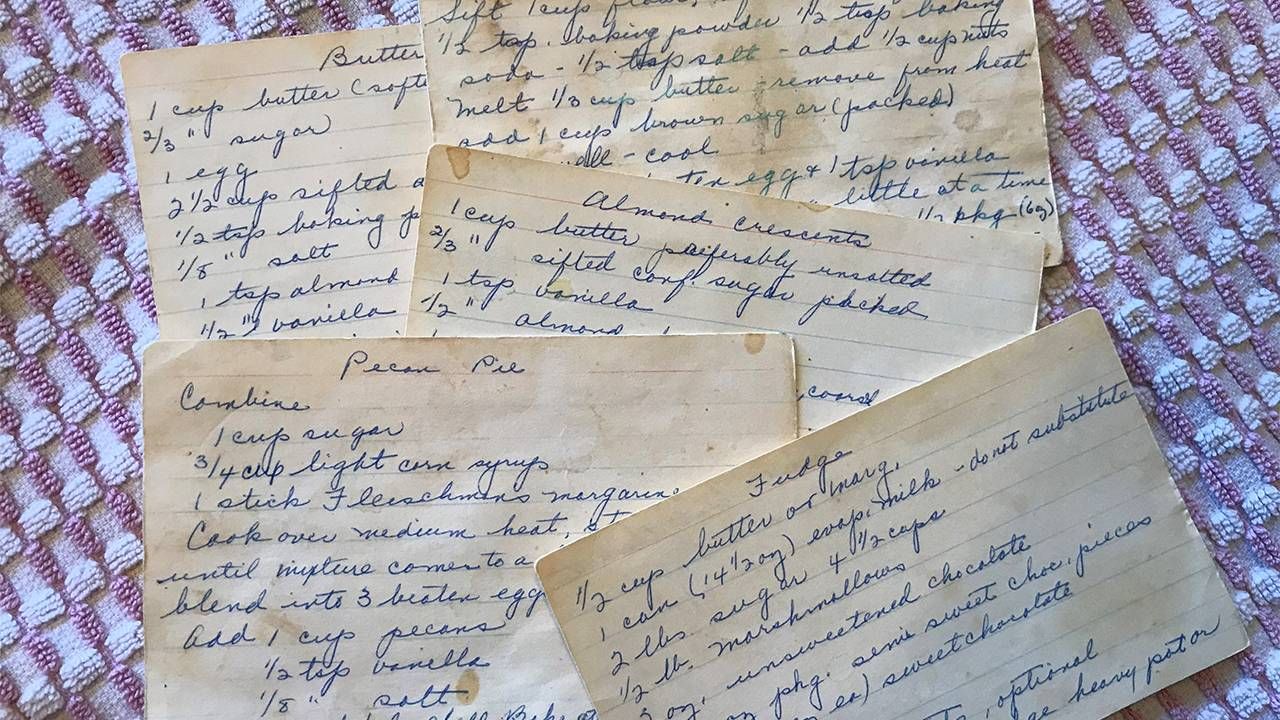 Butter
1 cup butter (softe
2/3 " sugar
1 egg
2 1/2 cup sifted a
1/2 tsp baking p
1/8 " salt
1 tsp almond
1/2 " vanilla
Sift 1 cup flour,
1/2 tsp. baking powder 1/2 tsp baking
soda - 1/2 tsp salt - add 1/2 cup nuts
Melt 1/3 cup butter - remove from heat
add 1 cup brown sugar (packed)
ell - cool
egg & 1 tsp vanilla
" little at a time
1/2 pkg (6oz)
Almond crescents
1 cup butter preferably unsalted
2/3 " sifted conf. sugar packed
1 tsp vanilla
1/2 " almond
Pecan Pie
Combine
1 cup sugar
3/4 cup light corn syrup
1 stick Fleischman's margarine
Cook over medium heat, st
until mixture comes to a
blend into 3 beaten egg
Add 1 cup pecans
1/2 tsp vanilla
1/8 " salt
Fudge
1/2 cup butter or marg.
1 can (14 1/2 oz) evap. milk - do not substitute
2 lbs sugar 4 1/2 cups
1/2 lb. marshmallows
oz. unsweetened chocolate
pkg. semi sweet choc. pieces
ea) sweet chocolate
, optional
ge heavy pot or